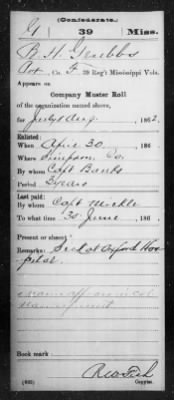 (Confederate.)
G 39 Miss.
B. H. Grubbs
Pvt, Co. F, 39 Reg't Mississippi Vols.
Appears on
Company Muster Roll
of the organization named above,
for July & Aug, 1862.
Enlisted:
When April 30, 186
Where Simpson Co.
By whom Capt Banks
Period 3 years
Last paid:
By whom Capt
To what time 30 June, 186
Present or absent
Remarks: Sick at Oxford Hos
pital
Book mark:
(635)
Copyist.